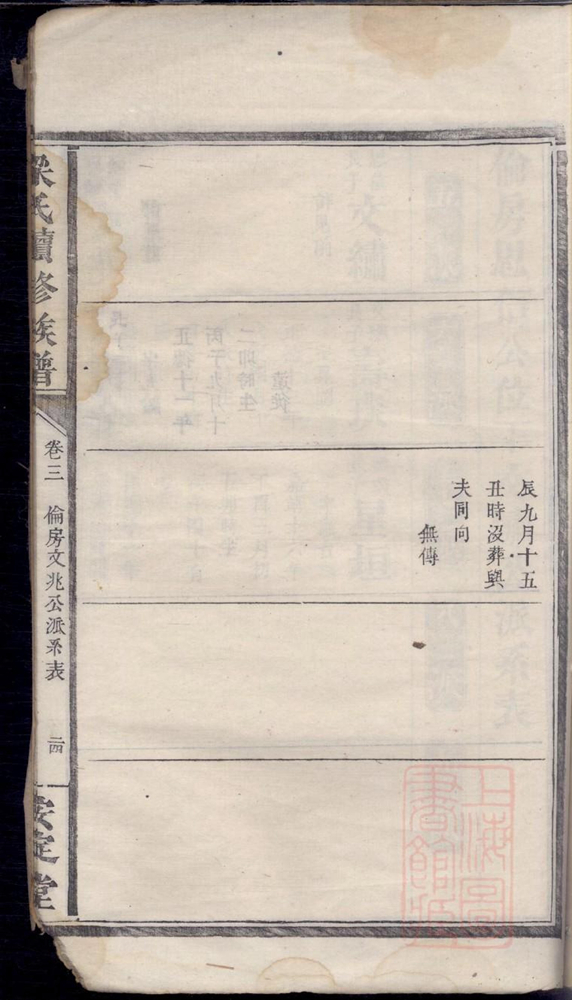 辰九月十五
丑時沒葬與
夫同向
無傳
氏續修族譜
卷三 倫房文兆公派系表 二四
安定堂
上海圖書館藏